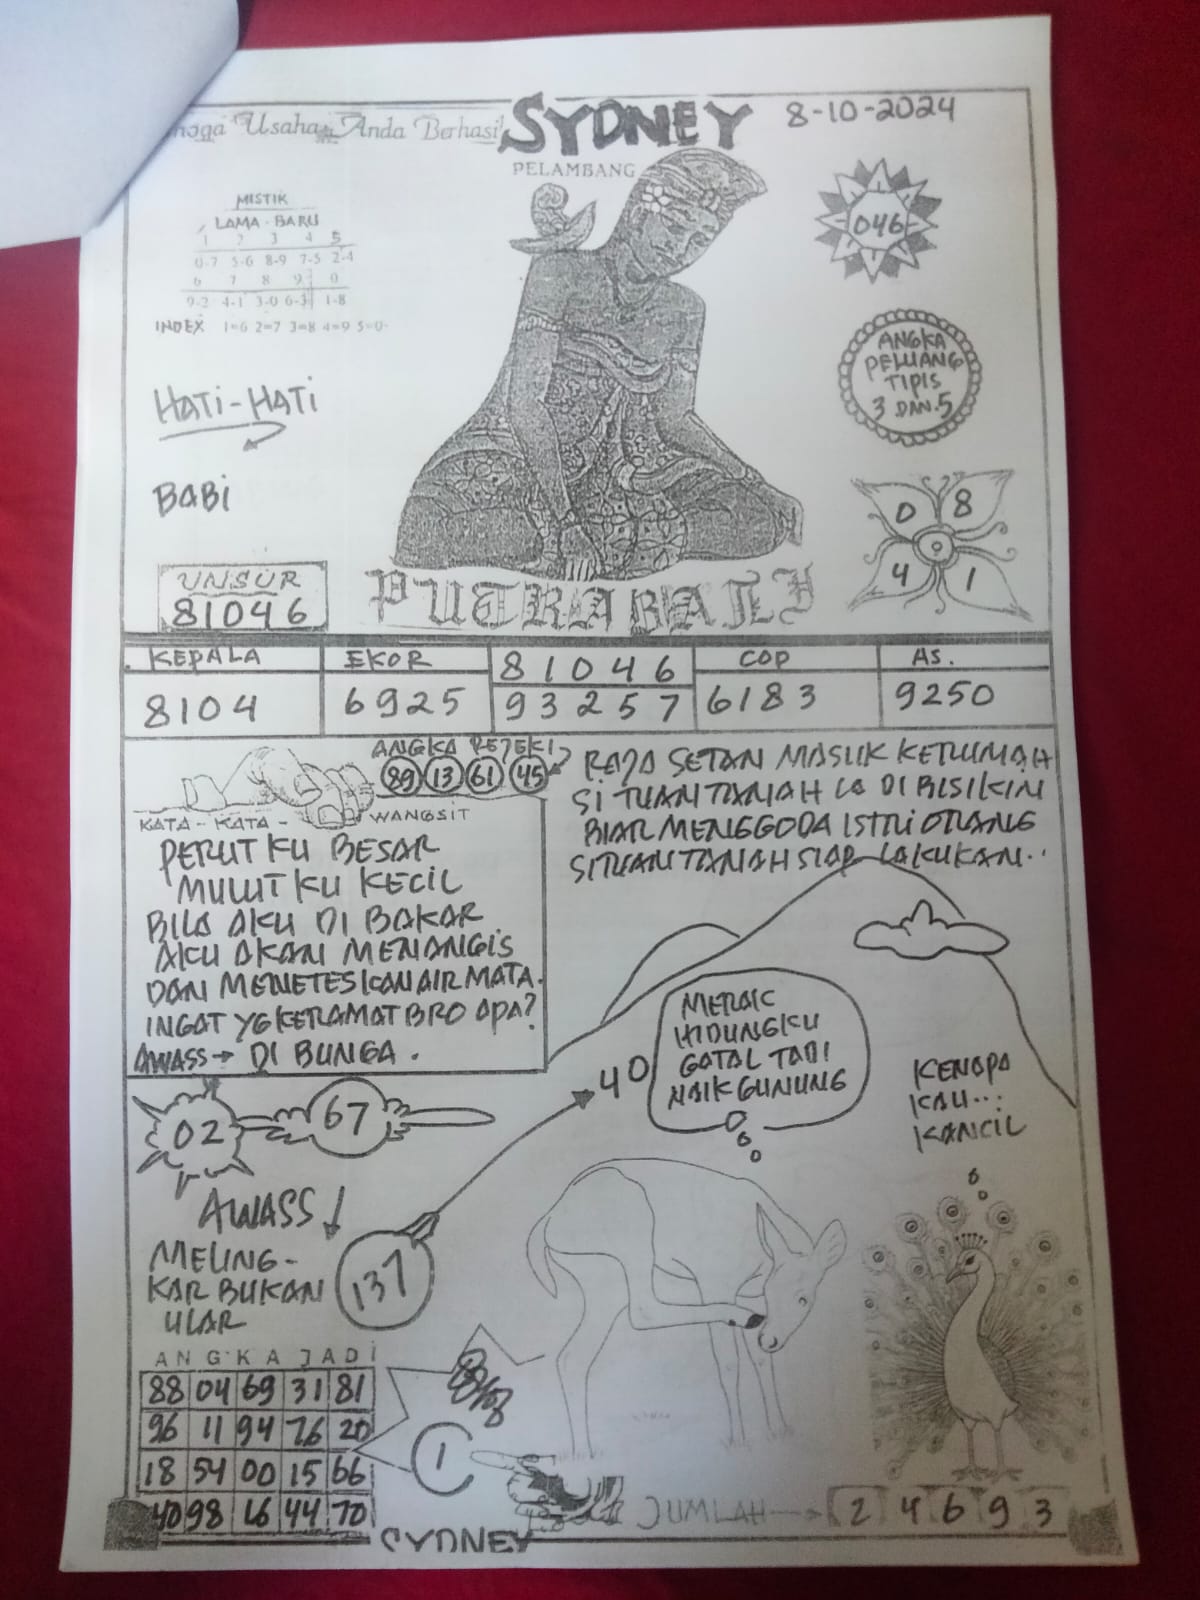 Usaha Anda Berhasil
SYDNEY
8-10-2024
PELAMBANG
MISTIK
LAMA - BARU
1 2 3 4 5
0-7 5-6 8-9 7-5 2-4
6 7 8 9 0
9-2 4-1 3-0 6-3 1-8
INDEX 1=6 2=7 3=8 4=9 5=0
046
ANGKA
PELUANG
TIPIS
3 DAN.5
HATI-HATI
BABI
0 8
4 1
UNSUR
81046
PUTRA BALI
KEPALA
8104
EKOR
6925
81046
93257
COP
6183
AS.
9250
ANGKA REJEKI
89 13 61 45
KATA - KATA - WANGSIT
PERUT KU BESAR
MULUT KU KECIL
BILA AKU DI BAKAR
AKU AKAN MENANGIS
DAN MENETESKAN AIR MATA.
INGAT YG KERAMAT BRO APA?
AWASS → DI BUNGA.
RAJA SETAN MASUK KERUMAH
SI TUAN TANAH LA DI BISIKIN
BIAR MENGGODA ISTRI ORANG
SITUAN TANAH SIAP LAKUKAN..
40
MERAK
HIDUNGKU
GATAL TADI
NAIK GUNUNG
KENAPA
KAU...
KANCIL
02
67
AWASS ↓
MELING-
KAR BUKAN
ULAR
137
ANGKA JADI
88 04 69 31 81
96 11 94 76 20
18 54 00 15 66
40 98 16 44 70
1
JUMLAH → 2 4 6 9 3
SYDNEY